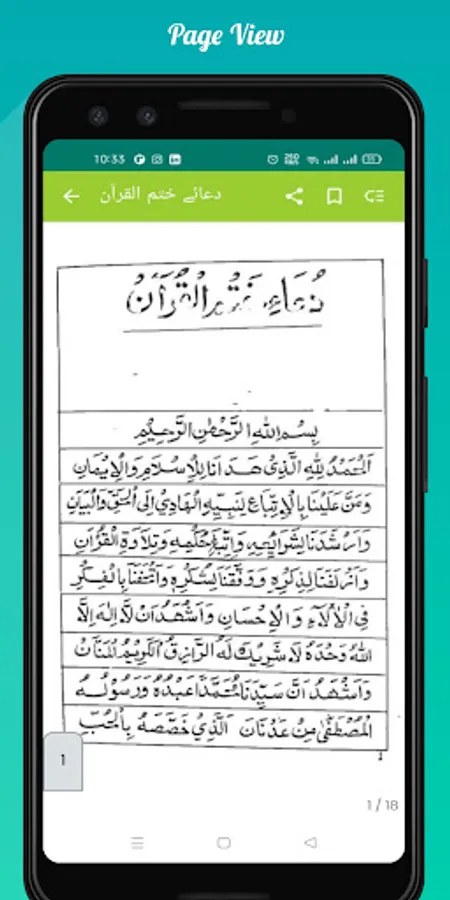 Page View
10:33
دعائے ختم القرآن
دُعَاءِ خَتْمُ الْقُرْآنْ
بِسْمِ اللهِ الرَّحْمٰنِ الرَّحِيْمِ
اَلْحَمْدُ لِلّٰهِ الَّذِيْ هَدَانَا لِلْاِسْلَامِ وَالْاِيْمَانِ
وَمَنَّ عَلَيْنَا بِالْاِتِّبَاعِ لِنَبِيِّهِ الْهَادِيْ اِلَى الْحَقِّ وَالْبَيَانِ
وَاَرْشَدَنَا لِشَرَائِعِهِ وَاتِّبَاعِ حُكْمِهِ وَتِلَاوَةِ الْقُرْآنِ
لِذِكْرِهِ وَوَفَّقَنَا لِشُكْرِهِ بِالْفِكْرِ
فِي الْاٰلَآءِ وَالْاِحْسَانِ وَاَشْهَدُ اَنْ لَّا اِلٰهَ اِلَّا
اللهُ وَحْدَهُ لَا شَرِيْكَ لَهُ الرَّازِقُ الْكَرِيْمُ الْمَنَّانُ
وَاَشْهَدُ اَنَّ سَيِّدَنَا مُحَمَّدًا عَبْدُهُ وَرَسُوْلُهُ
الْمُصْطَفٰى مِنْ عَدْنَانَ الَّذِيْ خَصَّصَهُ بِالْحُبِّ
1
1 / 18